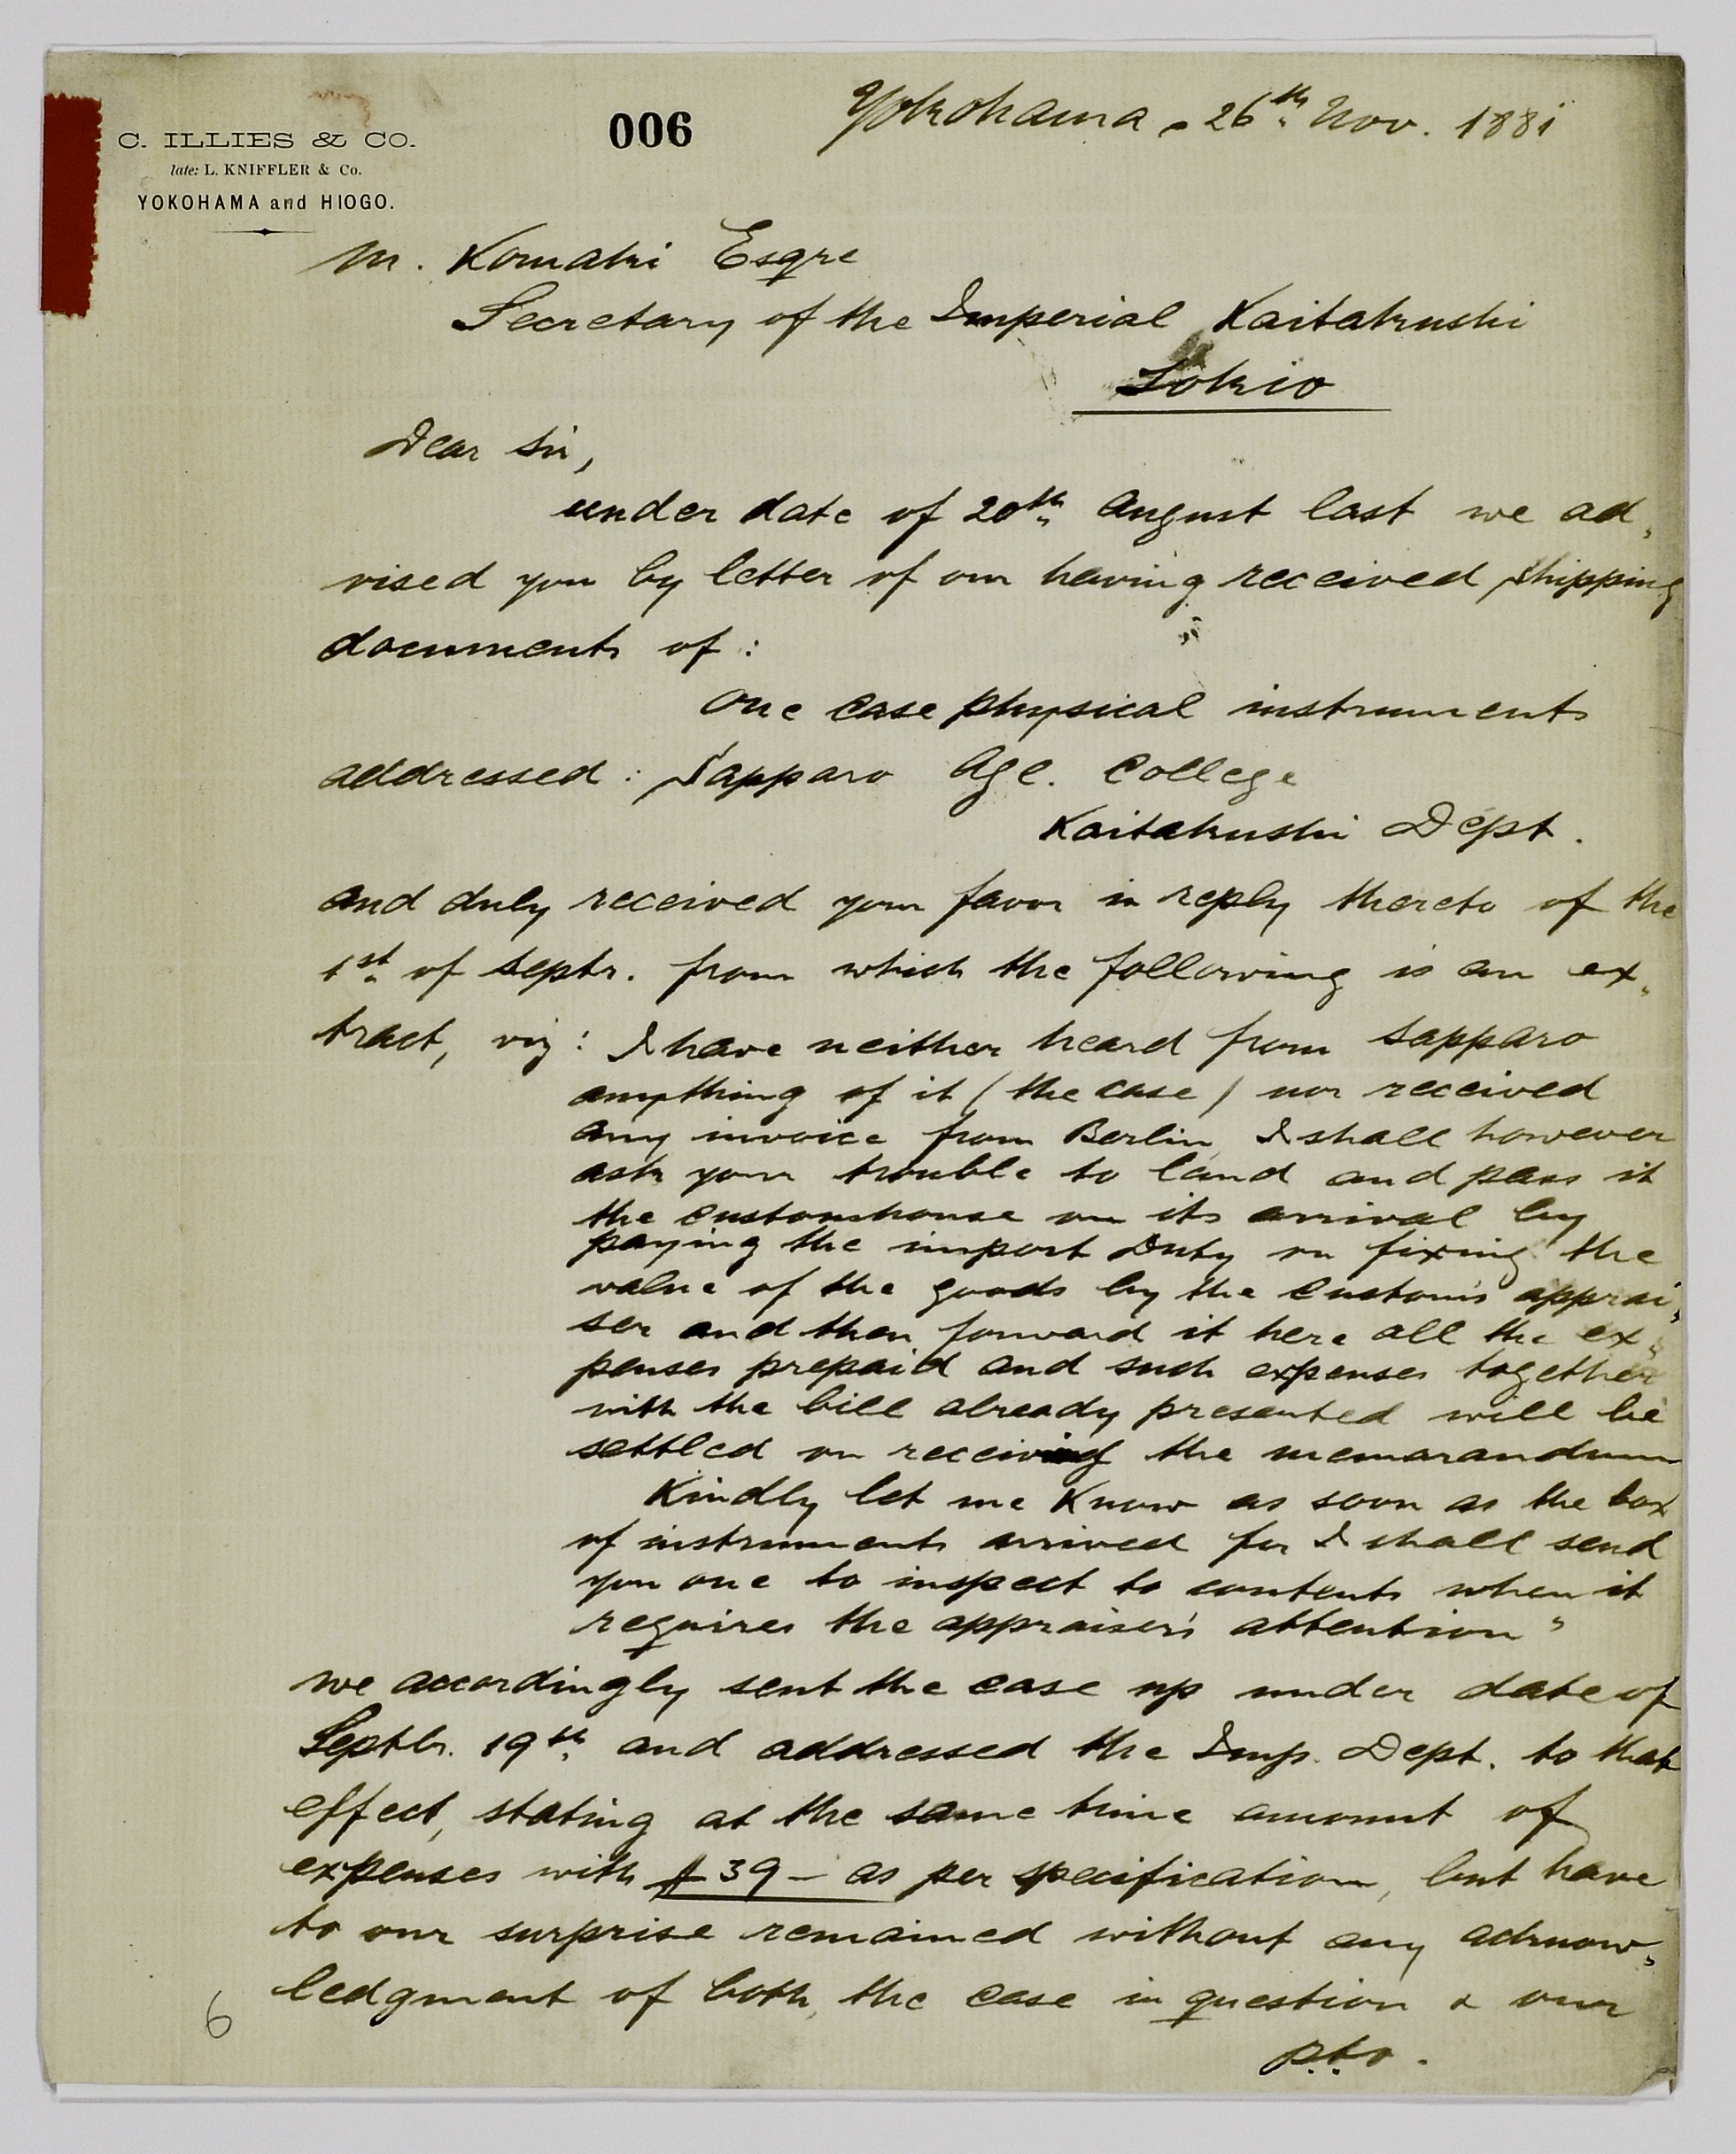 C. ILLIES & CO.
late: L. KNIFFLER & Co.
YOKOHAMA and HIOGO.
006
Yokohama, 26th Nov. 1881
M. Komaki Esqre
Secretary of the Imperial Kaitakushi
Tokio
Dear Sir,
under date of 20th August last we ad„
vised you by letter of our having received shipping
documents of :
One case physical instruments
addressed : Sapparo Agl. College
Kaitakushi Dept.
and duly received your favor in reply thereto of the
1st of Septr. from which the following is an ex„
tract, viz : I have neither heard from Sapparo
anything of it (the case) nor received
any invoice from Berlin, I shall however
ask your trouble to land and pass it
the customhouse on its arrival by
paying the import Duty on fixing the
value of the goods by the Custom's apprai„
ser and then forward it here all the ex„
penses prepaid and such expenses together
with the bill already presented will be
settled on receiving the memorandum
Kindly let me know as soon as the box
of instruments arrived for I shall send
you one to inspect to contents when it
requires the appraiser's attention"
we accordingly sent the case up under date of
Septbr. 19th and addressed the Imp. Dept. to that
effect, stating at the same time amount of
expenses with $ 39 – as per specification, but have
to our surprise remained without any acknow„
ledgment of both, the case in question & our
p.t.o.
6